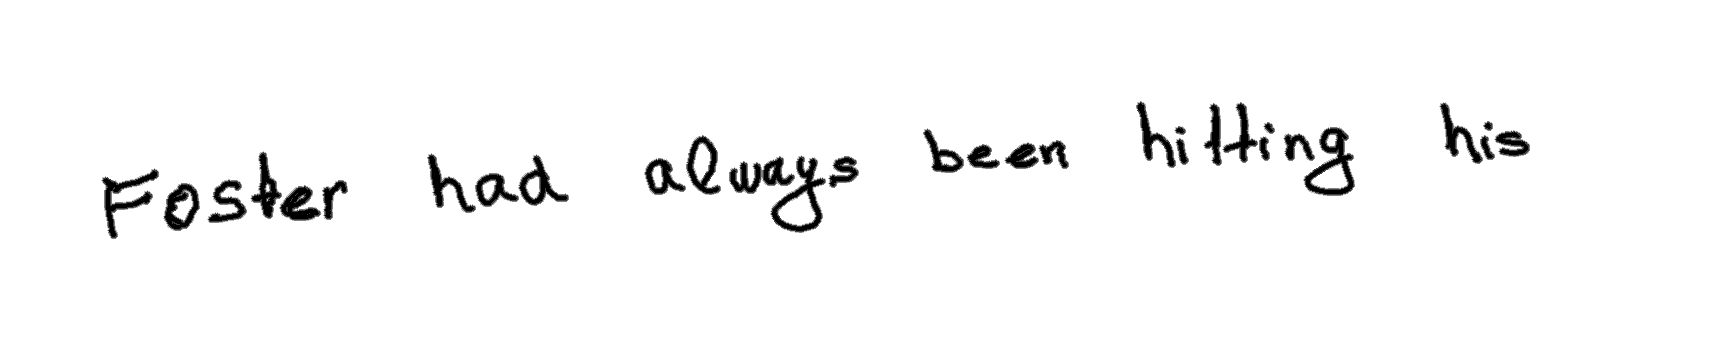 Foster had always been hitting his